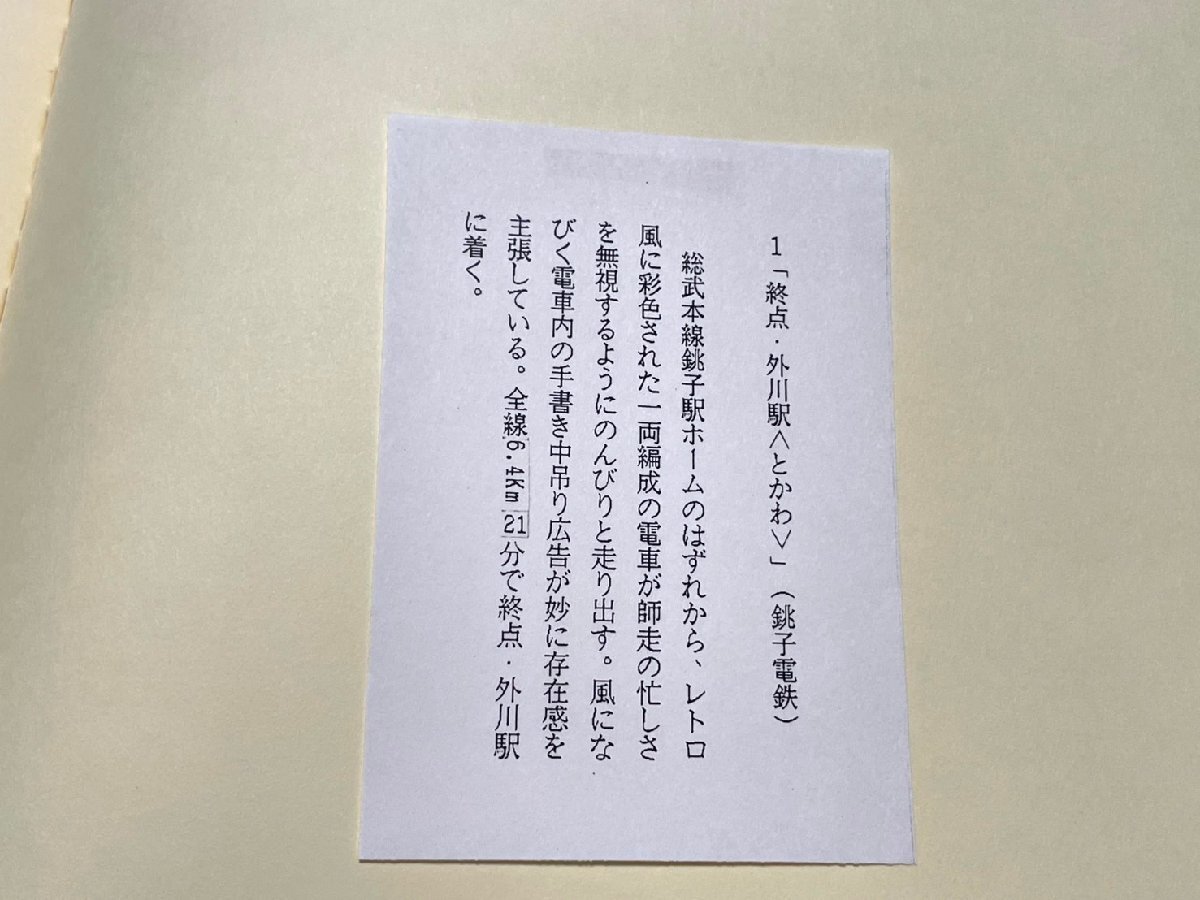 1「終点・外川駅<とかわ>」(銚子電鉄)
総武本線銚子駅ホームのはずれから、レトロ
風に彩色された一両編成の電車が師走の忙しさ
を無視するようにのんびりと走り出す。風にな
びく電車内の手書き中吊り広告が妙に存在感を
主張している。全線6.4Km21分で終点・外川駅
に着く。